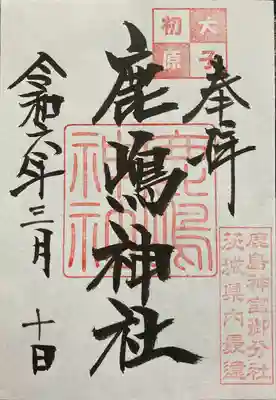 大子
初原
奉拝
鹿嶋神社
鹿嶋
神社
令和六年三月十日
鹿島神宮御分社
茨城県内最遠